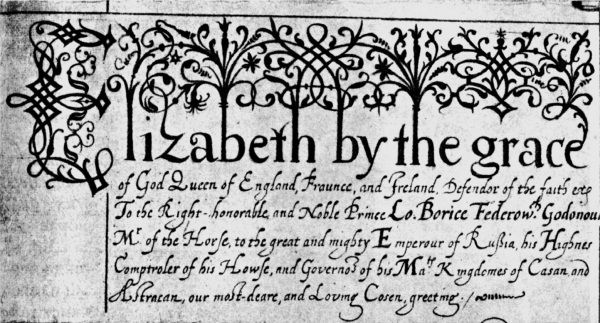 Elizabeth by the grace
of God Queen of England, Fraunce, and Ireland, Defendor of the faith etc
To the Right-honorable, and Noble Prince Lo. Borice Federowch Godonou
Mr. of the Horse, to the great and mighty Emperour of Rußia, his Highnes
Comptroler of his Howse, and Governor of his Maties Kingdomes of Casan, and
Astracan, our most-deare, and Loving Cosen, greeting.